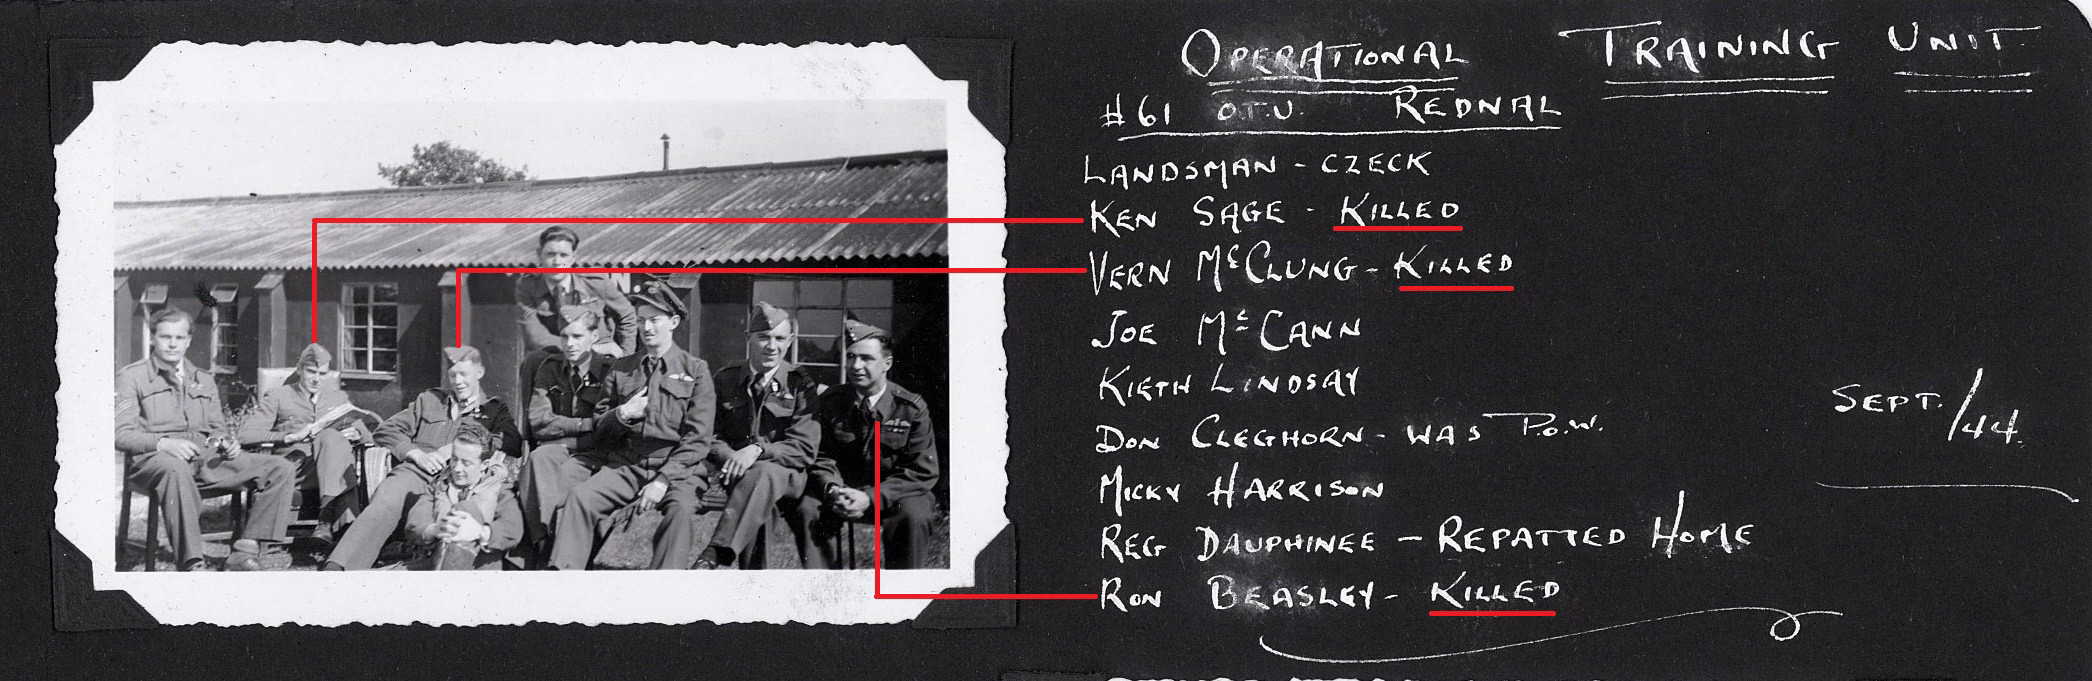 OPERATIONAL TRAINING UNIT
#61 O.T.U. REDNAL
LANDSMAN - CZECK
KEN SAGE - KILLED
VERN McCLUNG - KILLED
JOE McCANN
KIETH LINDSAY
DON CLEGHORN - WAS P.O.W.
MICKY HARRISON
REG DAUPHINEE - REPATTED HOME
RON BEASLEY - KILLED
SEPT./44.